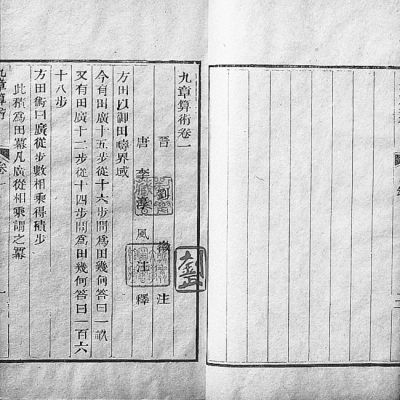 九章算術卷一
晉 劉 徽 注
唐 李淳風 注釋
方田以御田疇界域
今有田廣十五步從十六步問爲田幾何答曰一畝
又有田廣十二步從十四步問爲田幾何答曰一百六
十八步
方田術曰廣從步數相乘得積步
此積爲田冪凡廣從相乘謂之冪
九章算術 卷一 一